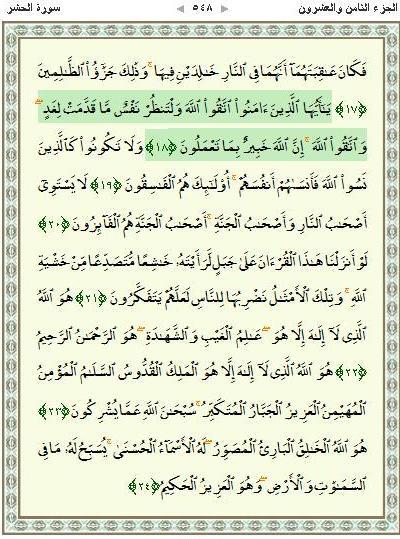 الجزء الثامن والعشرون ٥٤٨ سورة الحشر
فَكَانَ عَٰقِبَتَهُمَآ أَنَّهُمَا فِي ٱلنَّارِ خَٰلِدَيۡنِ فِيهَاۚ وَذَٰلِكَ جَزَٰٓؤُاْ ٱلظَّٰلِمِينَ
﴿١٧﴾ يَٰٓأَيُّهَا ٱلَّذِينَ ءَامَنُواْ ٱتَّقُواْ ٱللَّهَ وَلۡتَنظُرۡ نَفۡسٞ مَّا قَدَّمَتۡ لِغَدٖۖ
وَٱتَّقُواْ ٱللَّهَۚ إِنَّ ٱللَّهَ خَبِيرُۢ بِمَا تَعۡمَلُونَ ﴿١٨﴾ وَلَا تَكُونُواْ كَٱلَّذِينَ
نَسُواْ ٱللَّهَ فَأَنسَىٰهُمۡ أَنفُسَهُمۡۚ أُوْلَٰٓئِكَ هُمُ ٱلۡفَٰسِقُونَ ﴿١٩﴾ لَا يَسۡتَوِيٓ
أَصۡحَٰبُ ٱلنَّارِ وَأَصۡحَٰبُ ٱلۡجَنَّةِۚ أَصۡحَٰبُ ٱلۡجَنَّةِ هُمُ ٱلۡفَآئِزُونَ ﴿٢٠﴾
لَوۡ أَنزَلۡنَا هَٰذَا ٱلۡقُرۡءَانَ عَلَىٰ جَبَلٖ لَّرَأَيۡتَهُۥ خَٰشِعٗا مُّتَصَدِّعٗا مِّنۡ خَشۡيَةِ
ٱللَّهِۚ وَتِلۡكَ ٱلۡأَمۡثَٰلُ نَضۡرِبُهَا لِلنَّاسِ لَعَلَّهُمۡ يَتَفَكَّرُونَ ﴿٢١﴾ هُوَ ٱللَّهُ
ٱلَّذِي لَآ إِلَٰهَ إِلَّا هُوَۖ عَٰلِمُ ٱلۡغَيۡبِ وَٱلشَّهَٰدَةِۖ هُوَ ٱلرَّحۡمَٰنُ ٱلرَّحِيمُ
﴿٢٢﴾ هُوَ ٱللَّهُ ٱلَّذِي لَآ إِلَٰهَ إِلَّا هُوَ ٱلۡمَلِكُ ٱلۡقُدُّوسُ ٱلسَّلَٰمُ ٱلۡمُؤۡمِنُ
ٱلۡمُهَيۡمِنُ ٱلۡعَزِيزُ ٱلۡجَبَّارُ ٱلۡمُتَكَبِّرُۚ سُبۡحَٰنَ ٱللَّهِ عَمَّا يُشۡرِكُونَ ﴿٢٣﴾
هُوَ ٱللَّهُ ٱلۡخَٰلِقُ ٱلۡبَارِئُ ٱلۡمُصَوِّرُۖ لَهُ ٱلۡأَسۡمَآءُ ٱلۡحُسۡنَىٰۚ يُسَبِّحُ لَهُۥ مَا فِي
ٱلسَّمَٰوَٰتِ وَٱلۡأَرۡضِۖ وَهُوَ ٱلۡعَزِيزُ ٱلۡحَكِيمُ ﴿٢٤﴾